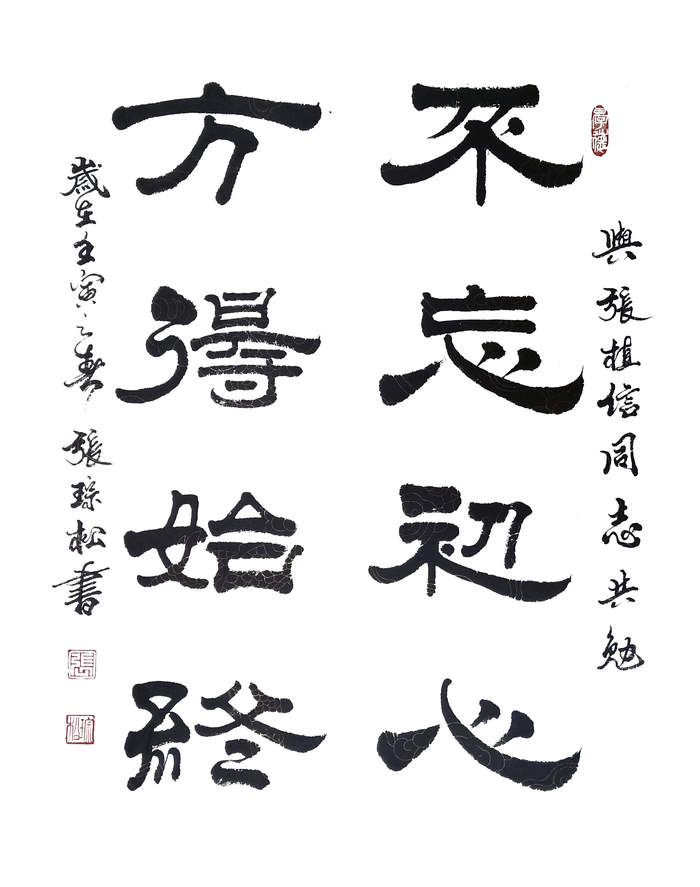 與張植信同志共勉
不忘初心
方得始終
歲在壬寅之春 張琮松書